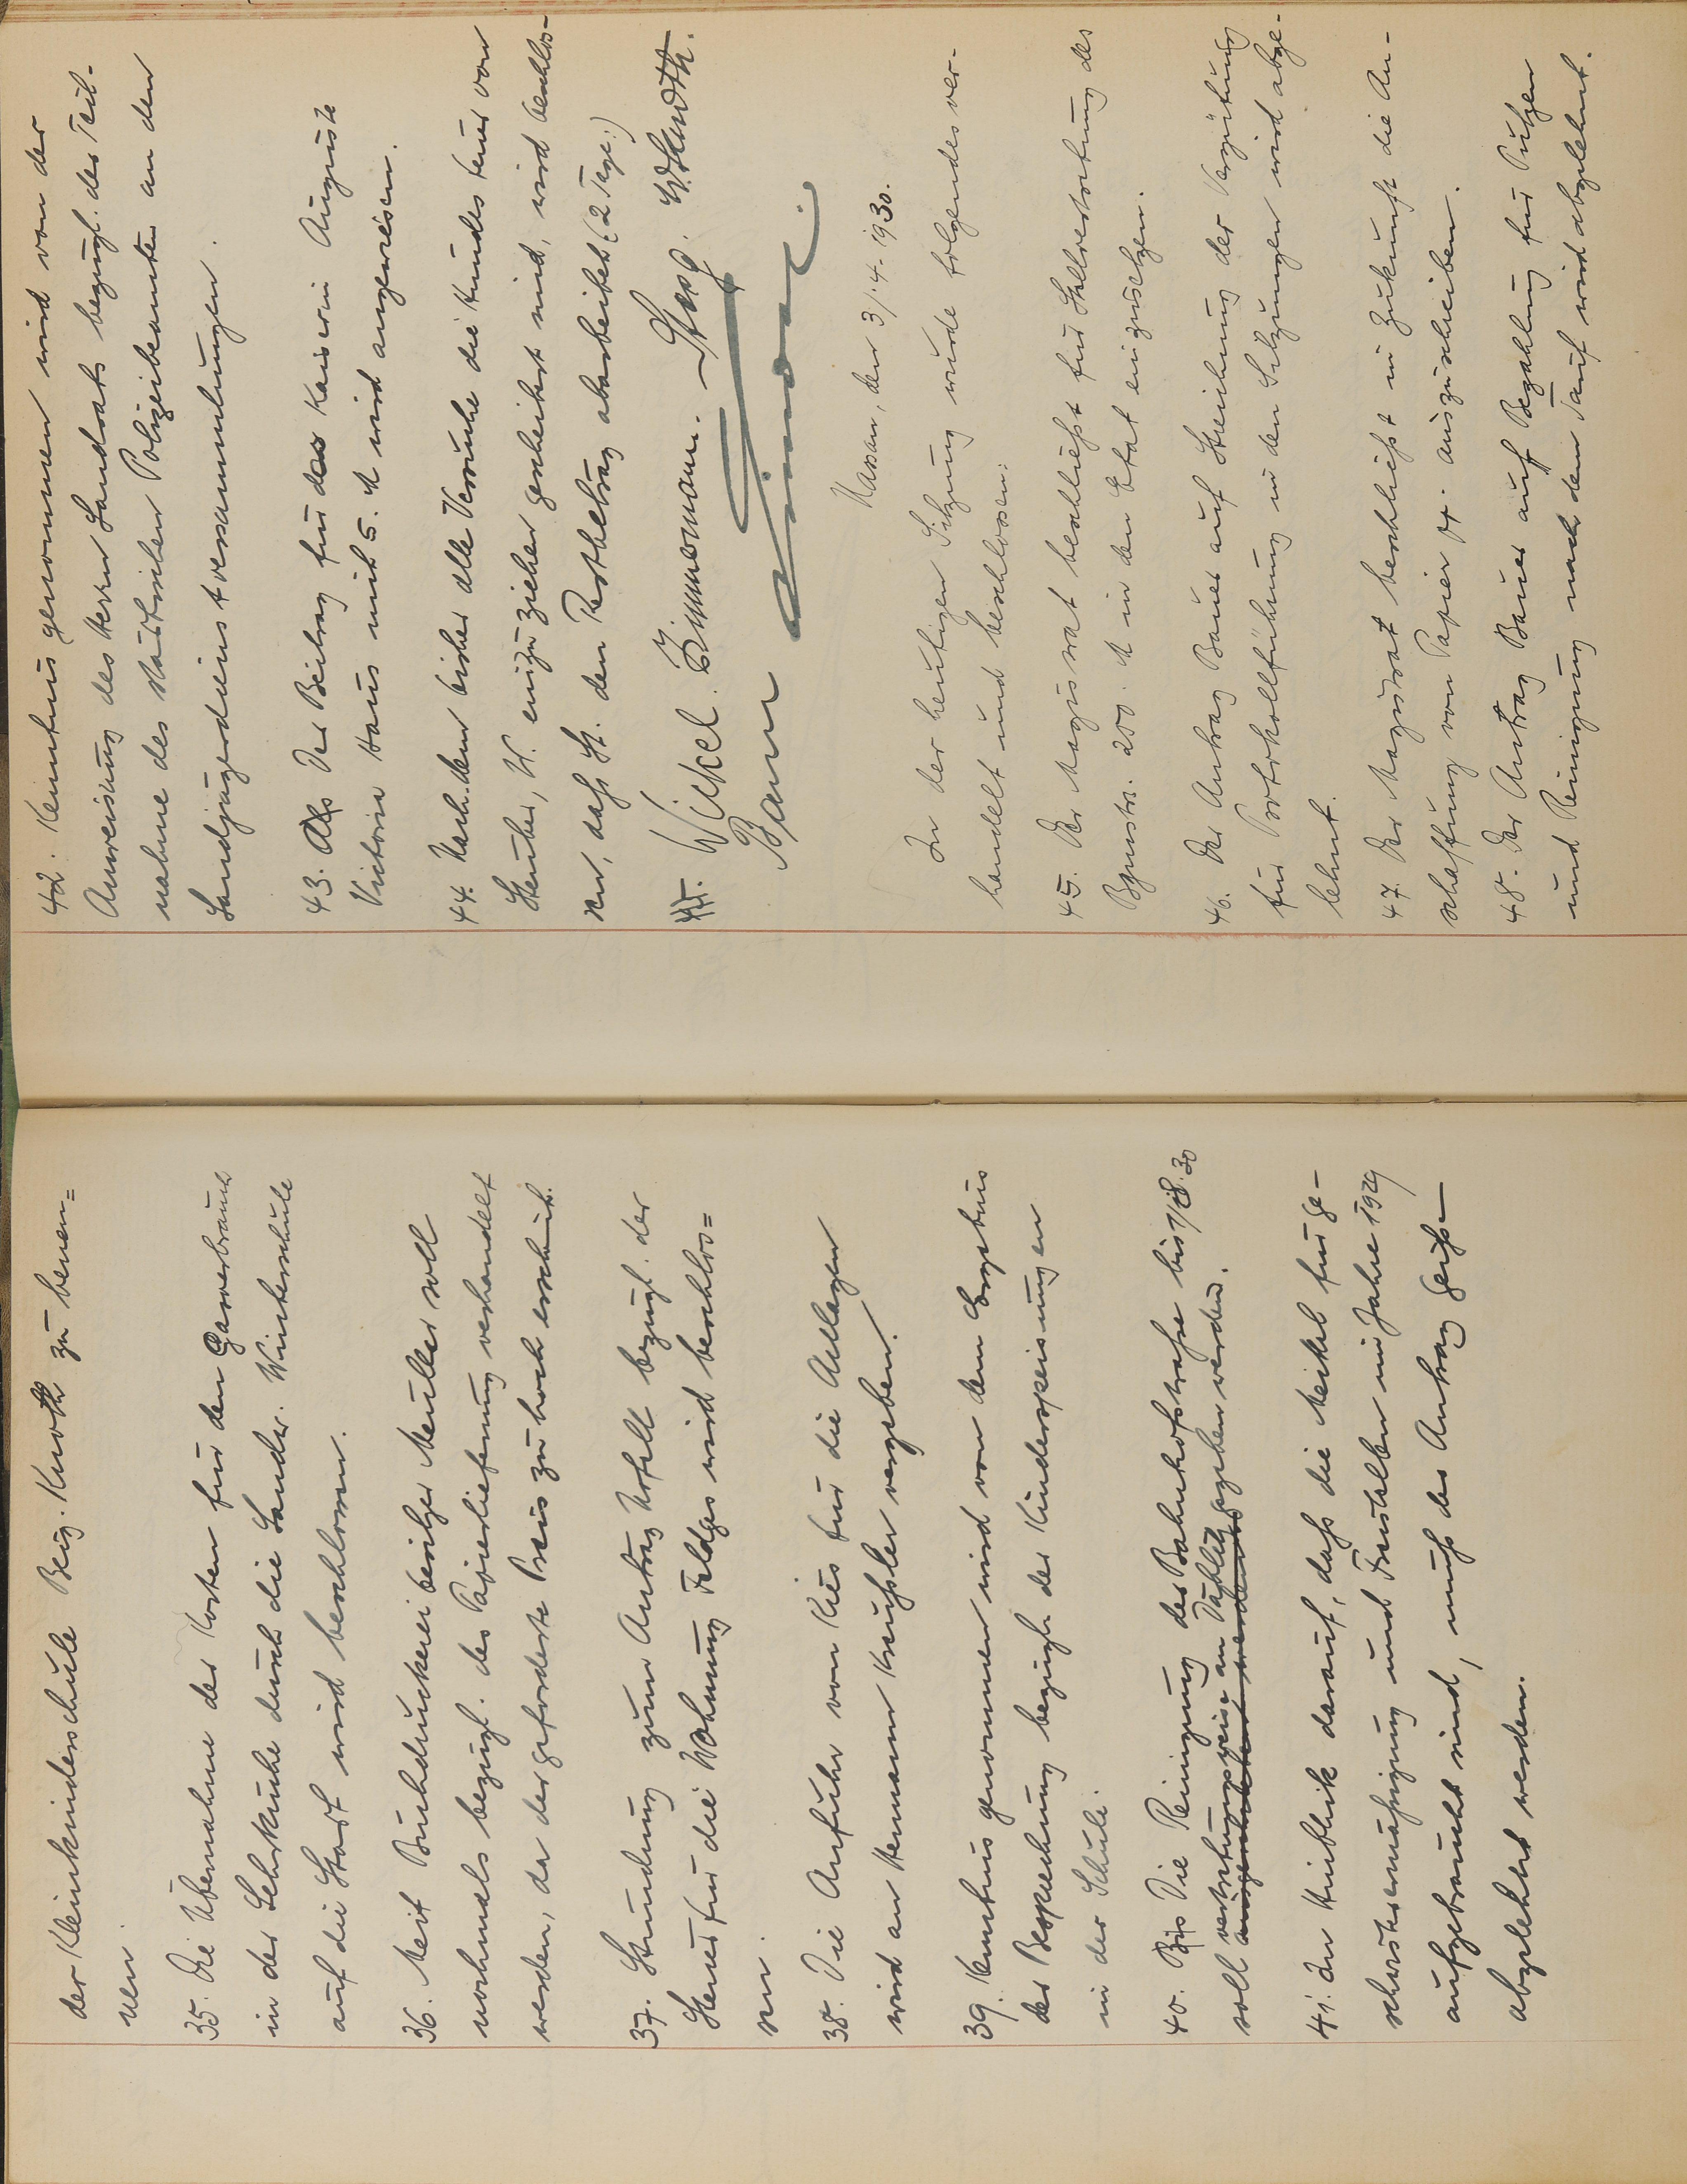 der Kleinkinderschule Beig. Knoth zu benen=
nen.
35. Die Übernahme der Kosten für den Gasverbrauch
in der Lehrküche durch die Landw. Winterschule
auf die Stadt wird beschlossen.
36. Mit Buchdruckereibesitzer Müller soll
nochmals bezügl. der Papierlieferung verhandelt
werden, da der geforderte Preis zu hoch erscheint.
37. Stundung zum Antrag bezügl. der
Steuer für die Wohnung Feldges wird beschlos=
sen.
38. Die Anfuhr von Kies für die Anlagen
wird an Hermann Kreussler vergeben.
39. Kenntnis genommen wird von dem Ergebnis
der Besprechung bezügl. der Kinderspeisungen
in der Schule.
40. Die Reinigung der Bahnhofstrasse bis 1/8. 30
soll vertretungsweise an vergeben werden.
41. Im Hinblick darauf, dass die Mittel für
und Freistellen im Jahre 1929
aufgebraucht sind, muss der Antrag Geiss
abgelehnt werden.
42. Kenntnis genommen wird von der
Anweisung des Herrn Landrats bezügl. der Teil-
nahme des städtischen Polizeibeamten an den
Landjägerdienstversammlungen.
43. Der Beitrag für das Kaiserin Auguste
Victoria Haus mit 5. M wird angewiesen.
44. Nachdem bisher alle Versuche die Hundesteuer von
Steuber, H. einzuziehen gescheitert sind, wird beschlos-
sen, dass St. den Restbetrag abarbeitet (2 Tage.)
Winkel. Zimmermann. W. Knoth.
Bauer
Nassau, den 3/.4. 1930.
In der heutigen Sitzung wurde folgendes ver-
handelt und beschlossen:
45. Der Magistrat beschliesst für Stellvertretung des
Bgmstrs. 200. M in den Etat einzusetzen.
46. Der Antrag Bauer auf Streichung der Vergütung
für Protokollführung in den Sitzungen wird abge-
lehnt.
47. Der Magistrat beschliesst in Zukunft die An-
schaffung von Papier pp. auszuschreiben.
48. Der Antrag Bauer auf Bezahlung für Putzen
und Reinigung nach dem Tarif wird abgelehnt.